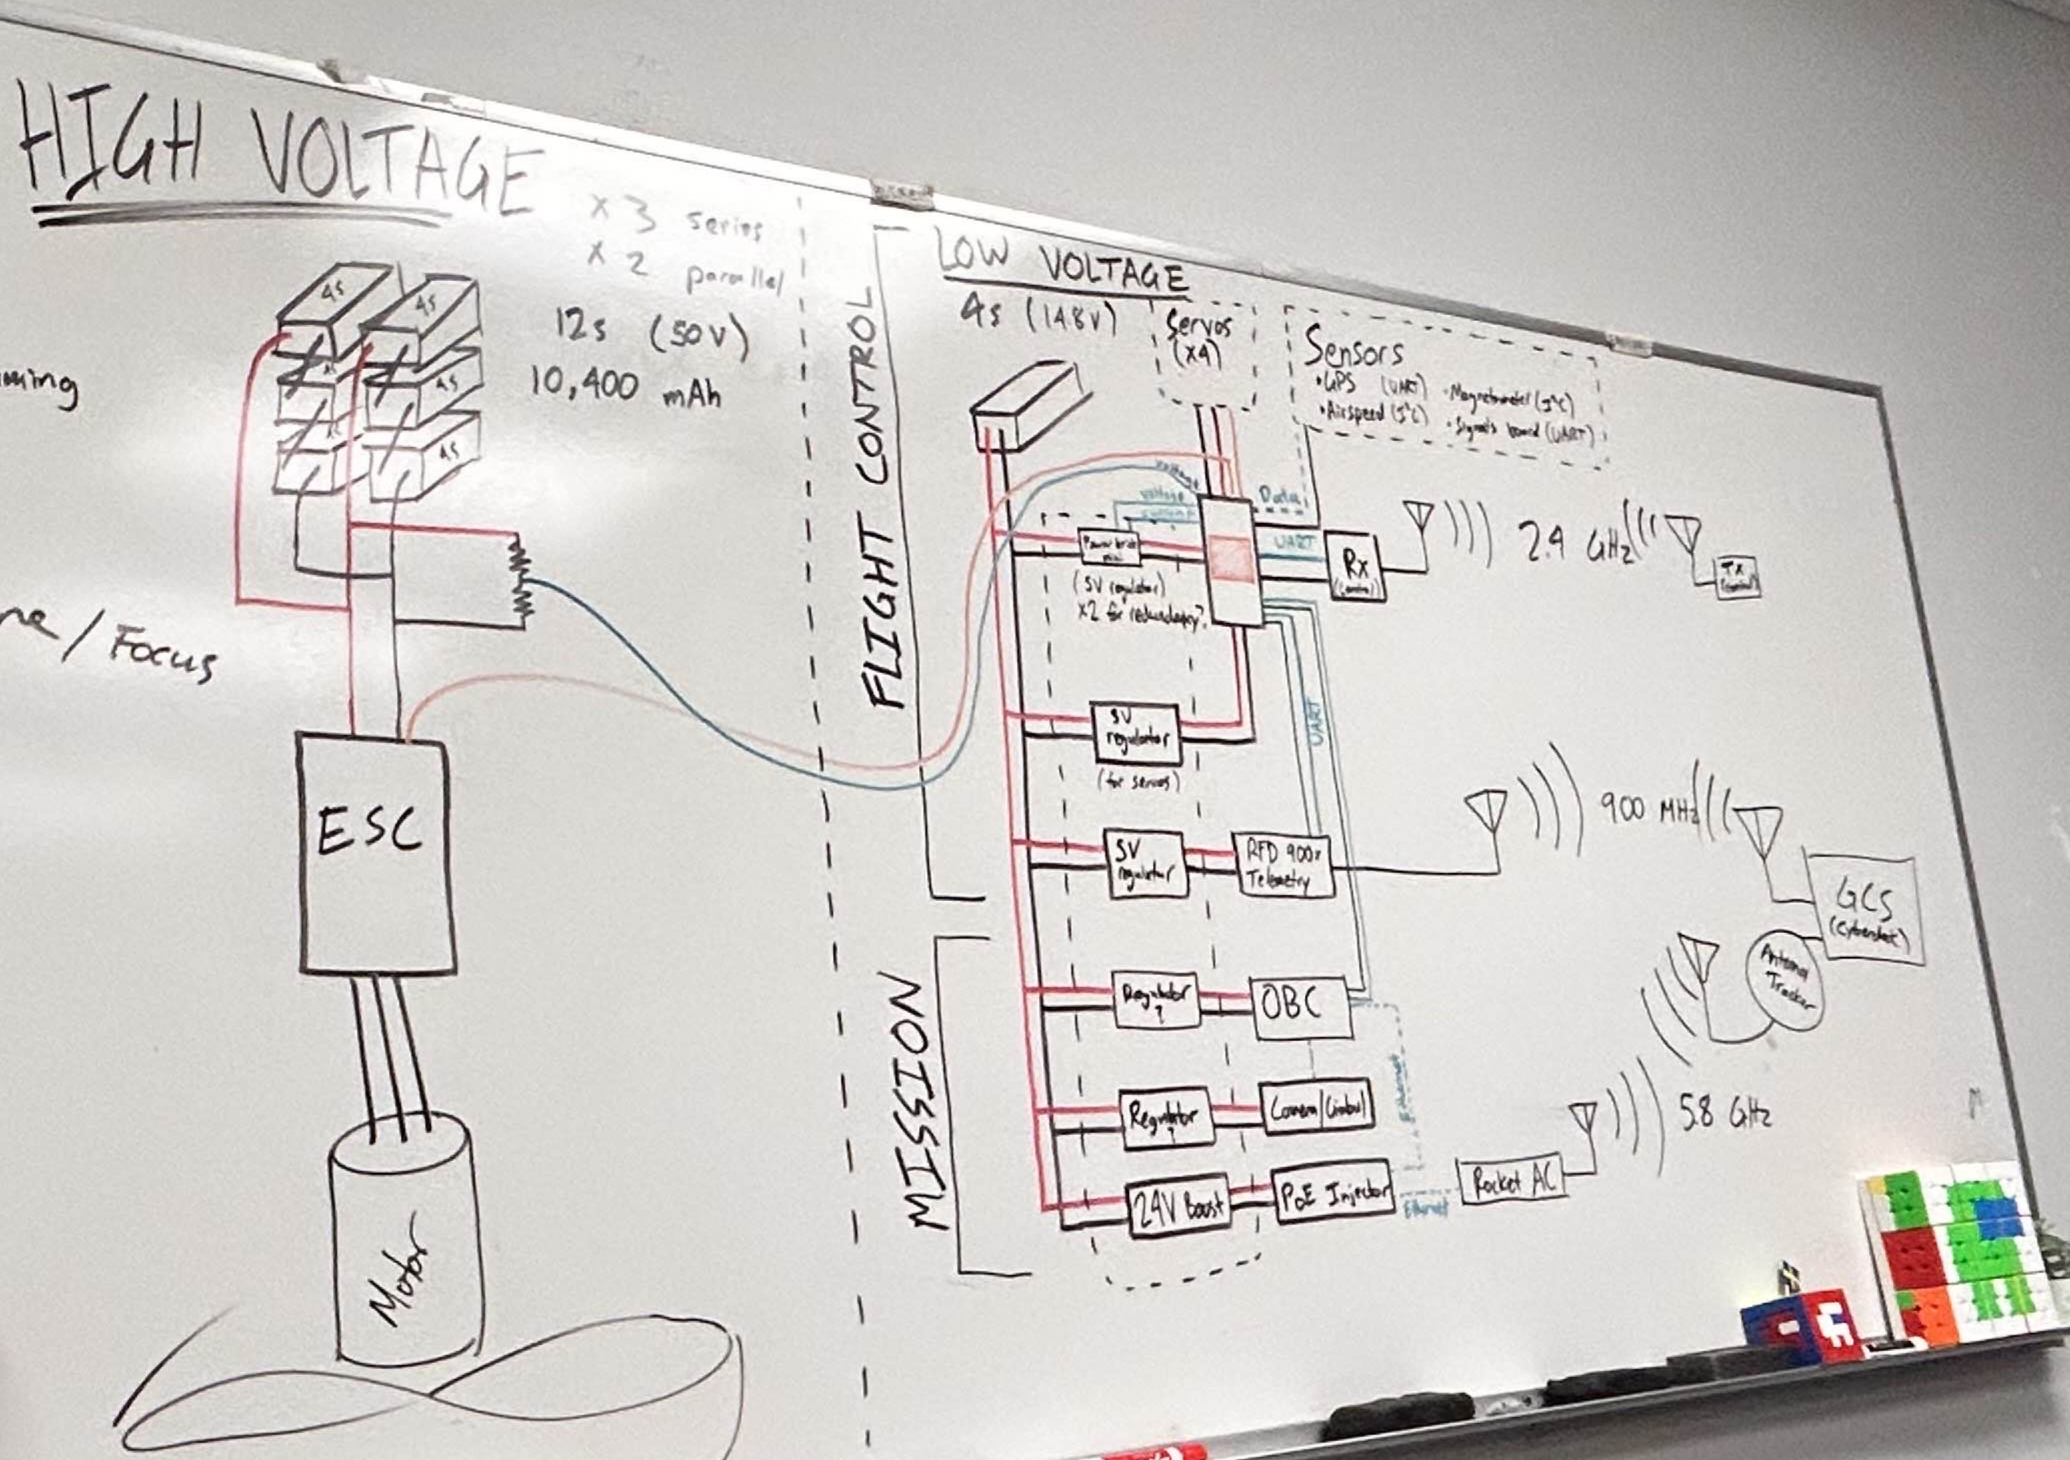 HIGH VOLTAGE
x 3 series
x 2 parallel
12s (50V)
10,400 mAh
4s
4s
4s
4s
ne / Focus
ESC
Motor
FLIGHT CONTROL
MISSION
LOW VOLTAGE
4s (14.8V)
Servos
(x4)
Sensors
• GPS (UART)
• Airspeed (I²C)
• Magnetometer (I²C)
• Signals board (UART)
Voltage
Voltage
current
Data
UART
Power brick
mini
(5V regulator)
x2 for redundancy?
Rx
(control)
2.4 GHz
Tx
(control)
5V
regulator
(for servos)
UART
5V
regulator
RFD 900x
Telemetry
900 MHz
GCS
Antenna
Tracker
Regulator
?
OBC
Ethernet
Regulator
?
Camera/Gimbal
24V Boost
PoE Injector
Ethernet
Rocket AC
5.8 GHz